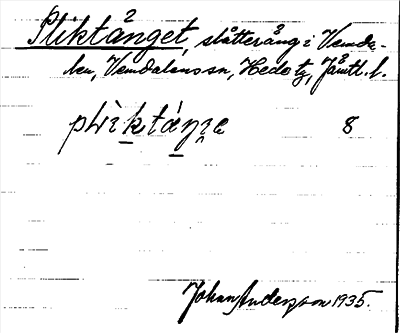 Pliktånget, slåtteräng i Vemda-
len, Vemdalens sn, Hede tg, Jämtl. l.
8
Johan Anderson 1935.